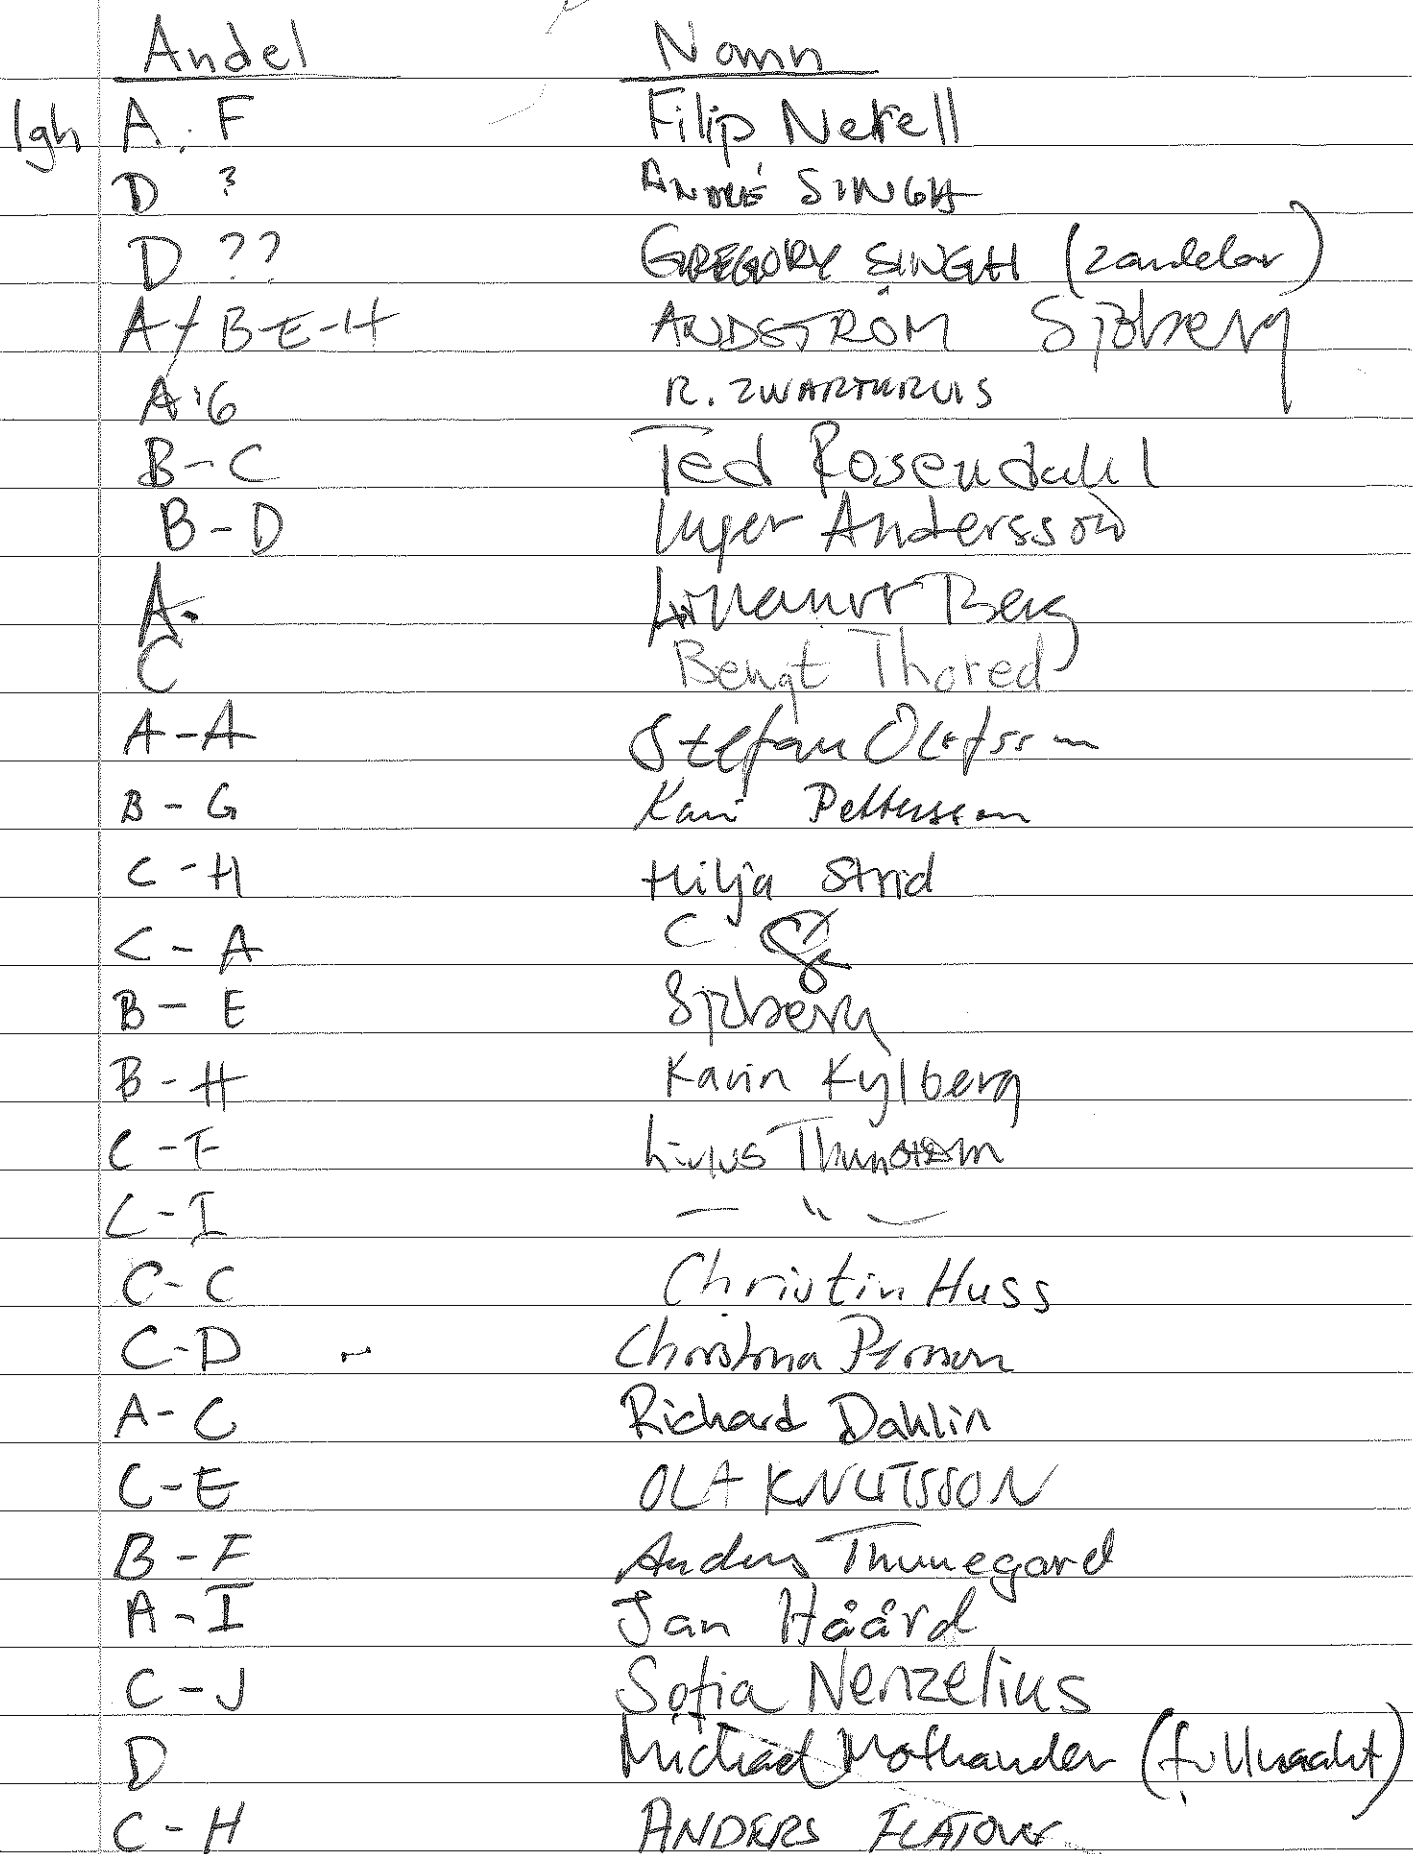 Andel Namn
lgh A: F Filip Nekell
D ? ANDRÉ SINGH
D ?? GREGORY SINGH (2 andelar)
A / B-E-H Sjöberg
A:G R. ZWARTKRUIS
B-C Ted Rosendahl
B-D Inger Andersson
A- Berg
C Bengt Thored
A-A Stefan Olofsson
B-G Pettersson
C-H Hilja Strid
C-A C
B-E Sjöberg
B-H Karin Kylberg
C-F Linus Thunström
C-I — " —
C-C Christin Huss
C-D Christina Persson
A-C Richard Dahlin
C-E OLA KNUTSSON
B-F Anders Thunegard
A-I Jan Håård
C-J Sofia Nenzelius
D Michael Mothander (fullmakt)
C-H ANDERS